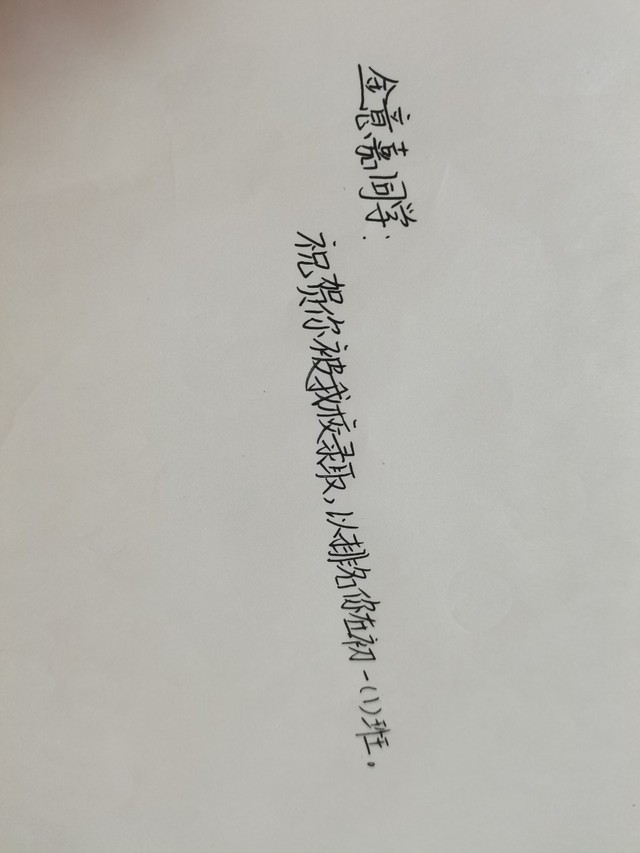 金意嘉同学:
祝贺你被我校录取,以排名你在初一(1)班。